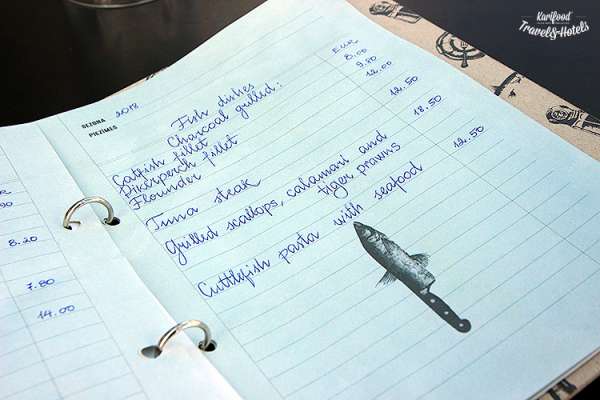 Karlfood
Travel&Hotels
SEZONA 2018
PIEZĪMES
Fish dishes EUR
Charcoal grilled:
Catfish fillet 8.00
Pikeperch fillet 9.80
Flounder 12.00
Tuna steak 12.50
Grilled scallops, calamari and
tiger prawns 18.50
Cuttlefish pasta with seafood 12.50
8.20
7.80
14.00